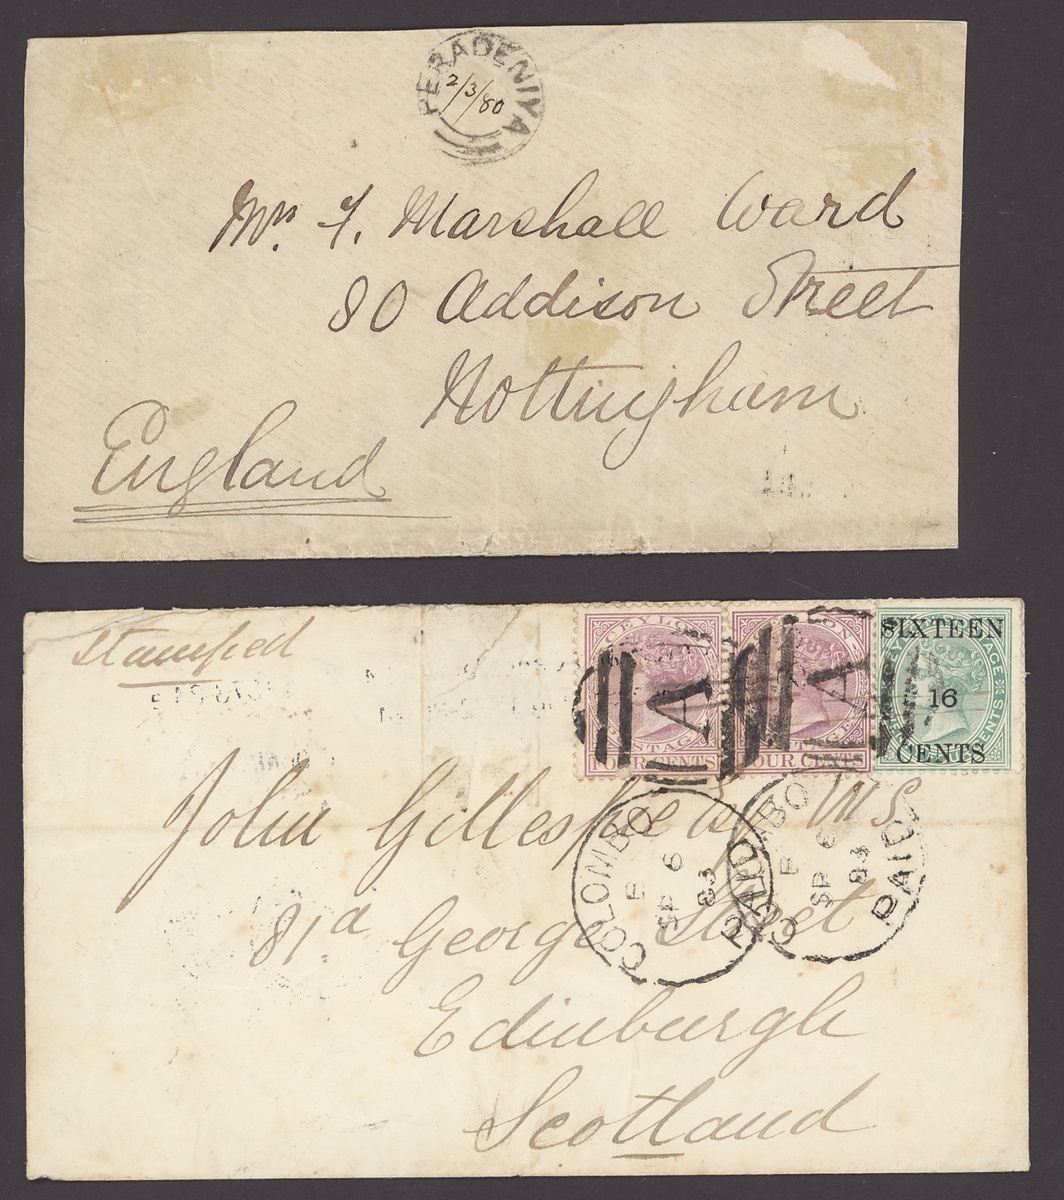 PERADENIYA
2/3/80
Mr. F. Marshall Ward
80 Addison Street
Nottingham
England
Stamped
CEYLON
POSTAGE
FOUR CENTS
A
FOUR CENTS
A
SIXTEEN
16
CENTS
John Gillespie Esq W.S.
81a George Street
Edinburgh
Scotland
COLOMBO
PAID
E
SP 6
83
COLOMBO
PAID
E
SP 6
83